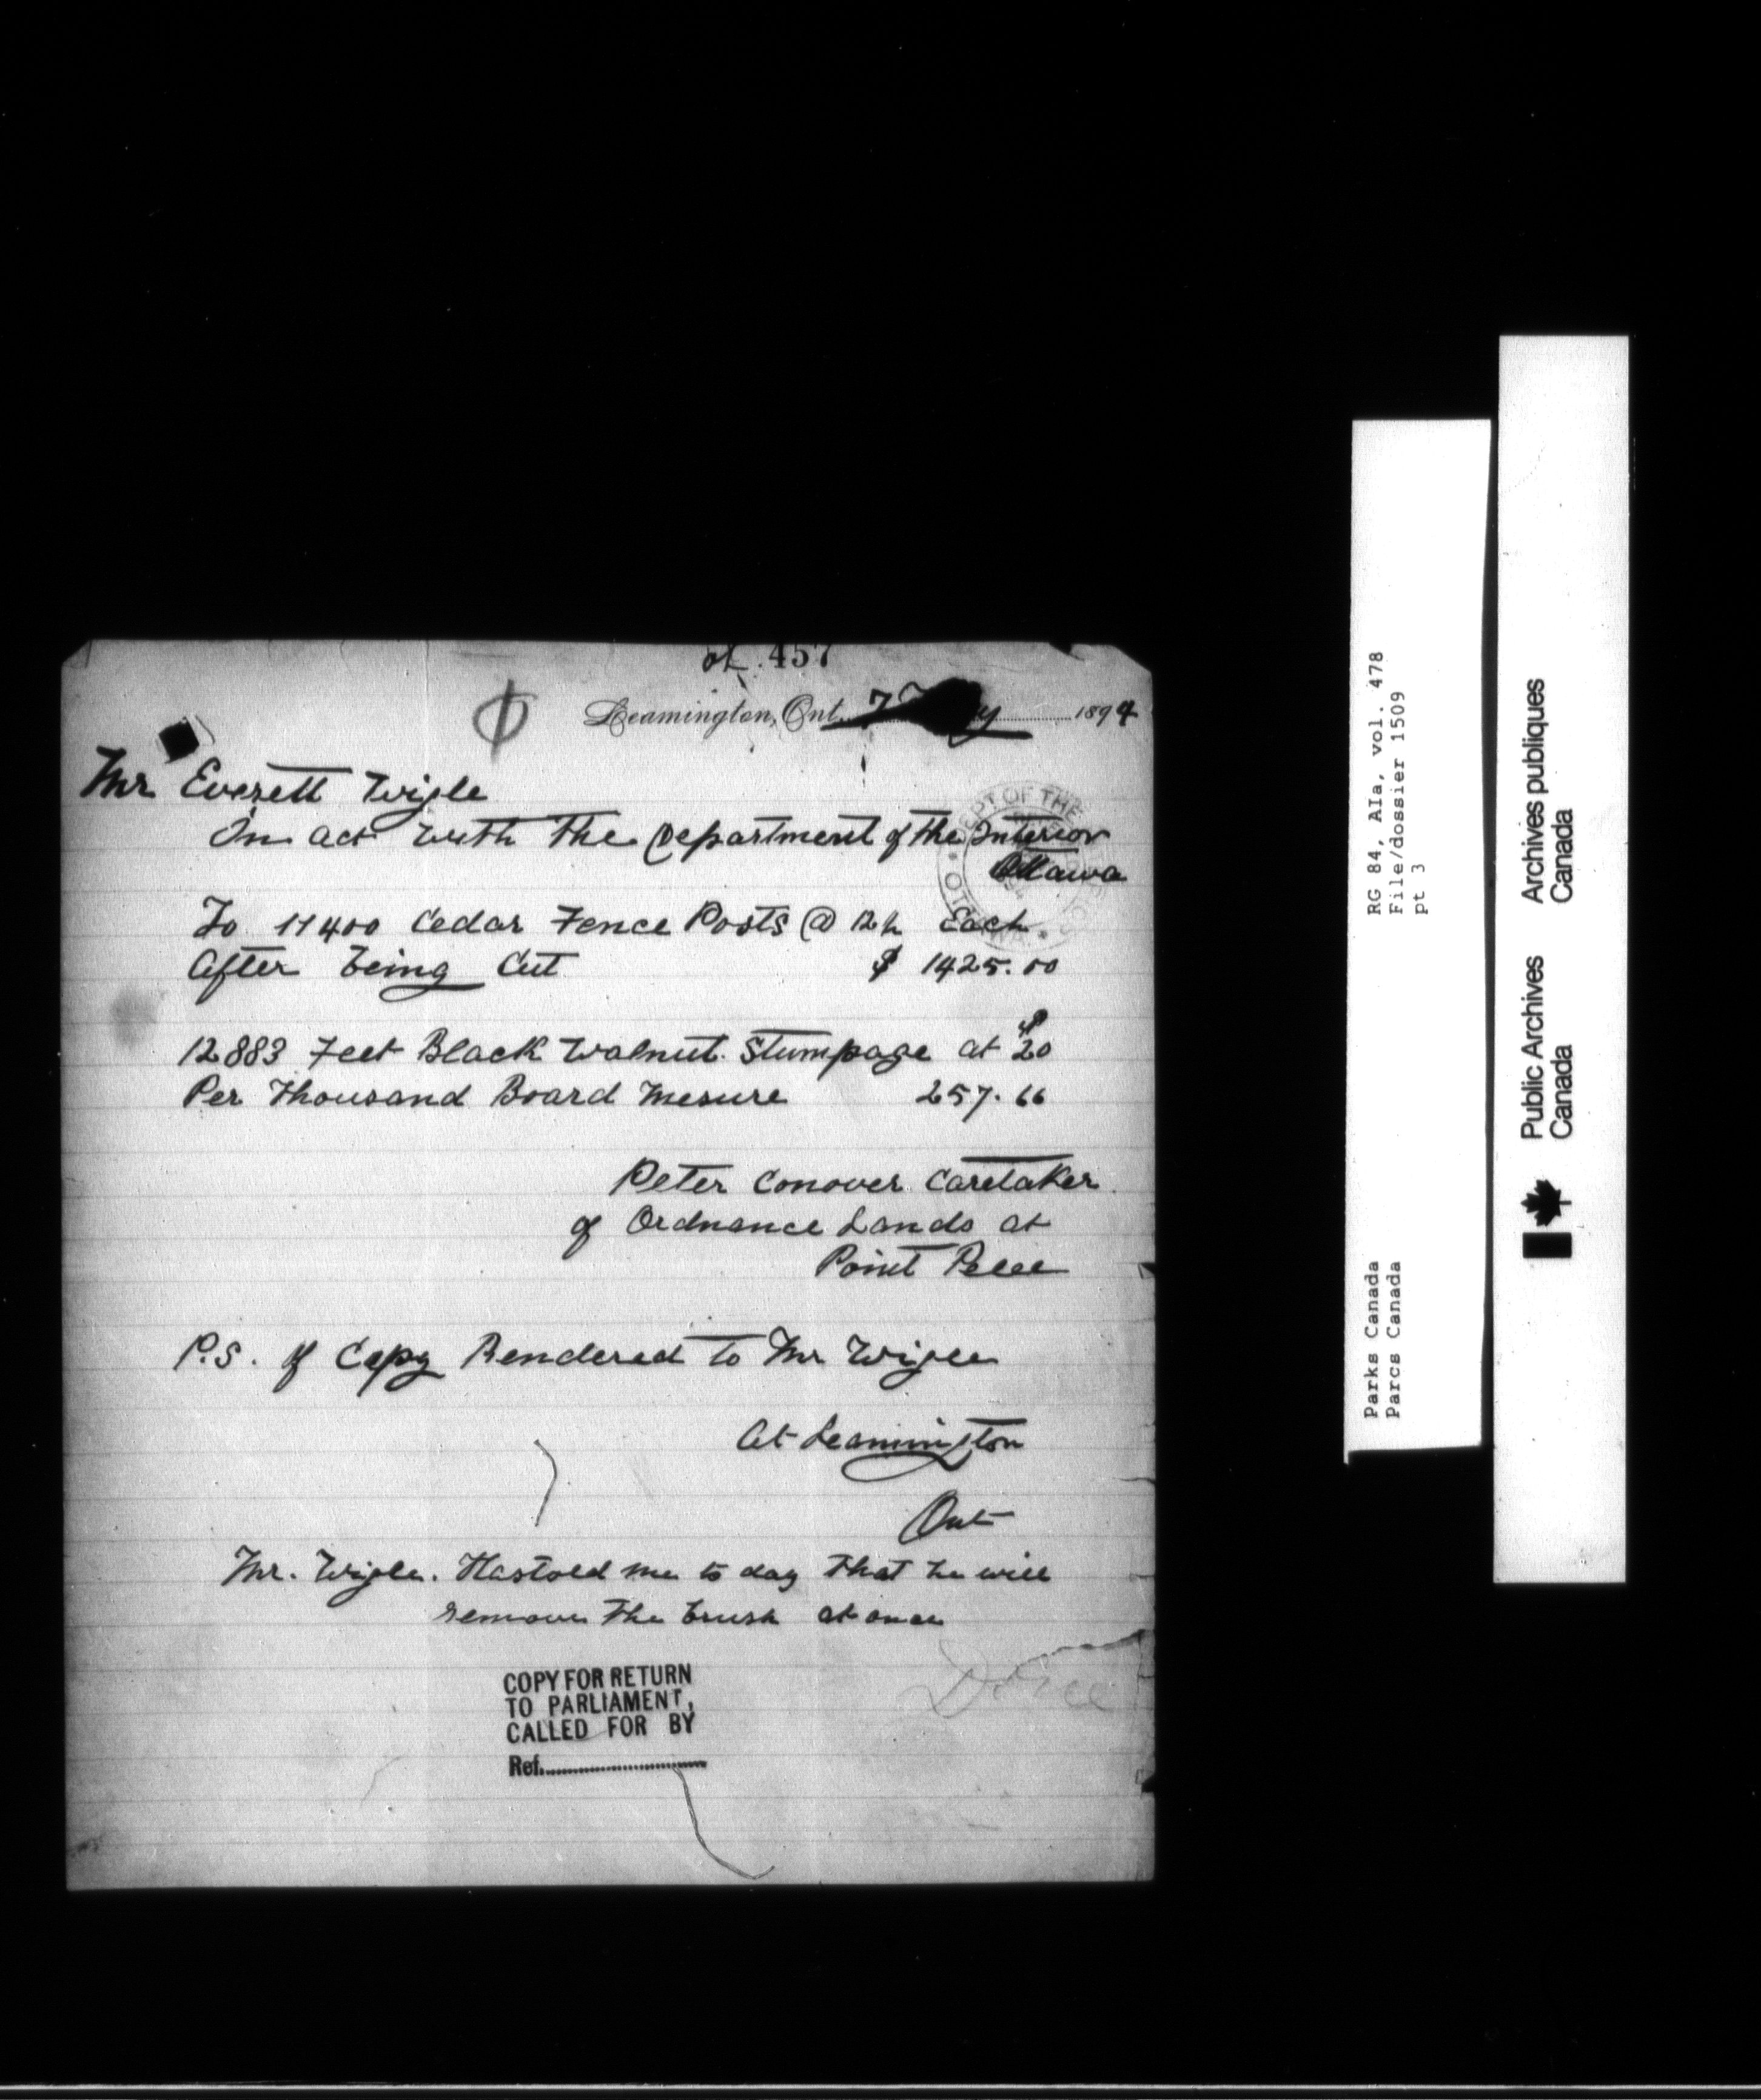 of 457
Leamington, Ont. 7 1894
Mr Everett Wigle
In act with the Department of the Interior
Ottawa
To 11400 Cedar Fence Posts @ 12½ Each
After being Cut $ 1425.00
12883 Feet Black Walnut Stumpage at $20
Per Thousand Board Mesure 257.66
Peter Conover Caretaker
of Ordnance Lands at
Point Pelee
P.S. Copy Rendered to Mr Wigle
At Leamington
Ont
Mr. Wigle. Has told me to day that he will
remove the brush at once
Done
COPY FOR RETURN
TO PARLIAMENT,
CALLED FOR BY
Ref.
DEPT OF THE
Parks Canada RG 84, A1a, vol. 478
Parcs Canada File/dossier 1509
pt 3
Public Archives Archives publiques
Canada Canada